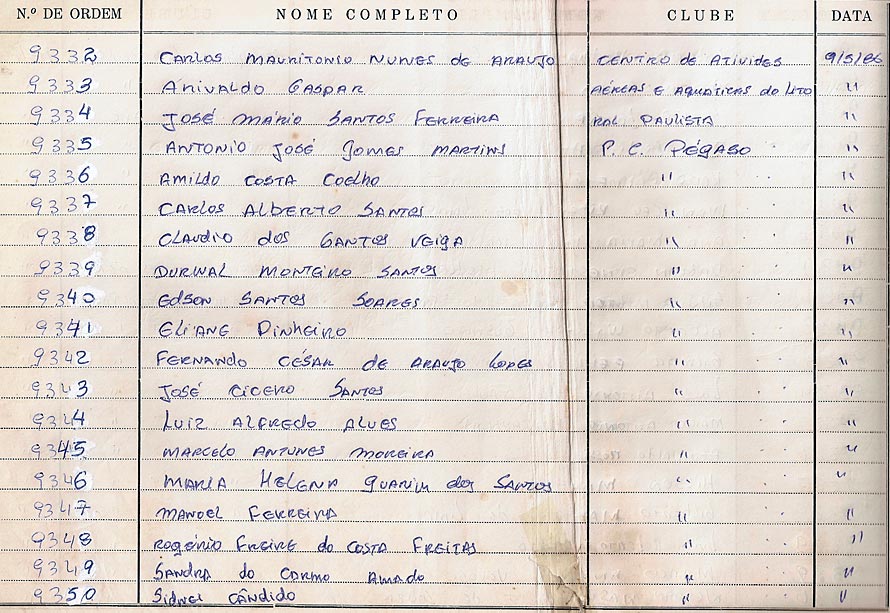 N.º DE ORDEM NOME COMPLETO CLUBE DATA
9332 CARLOS MAURITONIO NUNES de ARAUJO CENTRO de ATIVIDES 9/5/86
9333 ARIVALDO GASPAR AÉREAS E AQUÁTICAS do LITO "
9334 JOSÉ MÁRIO SANTOS FERREIRA RAL PAULISTA "
9335 ANTONIO JOSÉ Gomes MARTINS P. C. PÉGASO "
9336 AMILDO COSTA COELHO " "
9337 CARLOS ALBERTO SANTOS " "
9338 CLAUDIO dos SANTOS VEIGA " "
9339 DURWAL MONTEIRO SANTOS " "
9340 EDSON SANTOS SOARES " "
9341 ELIANE PINHEIRO " "
9342 FERNANDO CÉSAR de ARAUJO LOPES " "
9343 JOSÉ CICERO SANTOS " "
9344 LUIZ ALFREDO ALVES " "
9345 MARCELO ANTUNES MOREIRA " "
9346 MARIA HELENA dos SANTOS " "
9347 MANOEL FERREIRA " "
9348 ROGÉRIO FREIRE do COSTA FREITAS " "
9349 SANDRA do CARMO AMADO " "
9350 SIDNEI CÂNDIDO " "